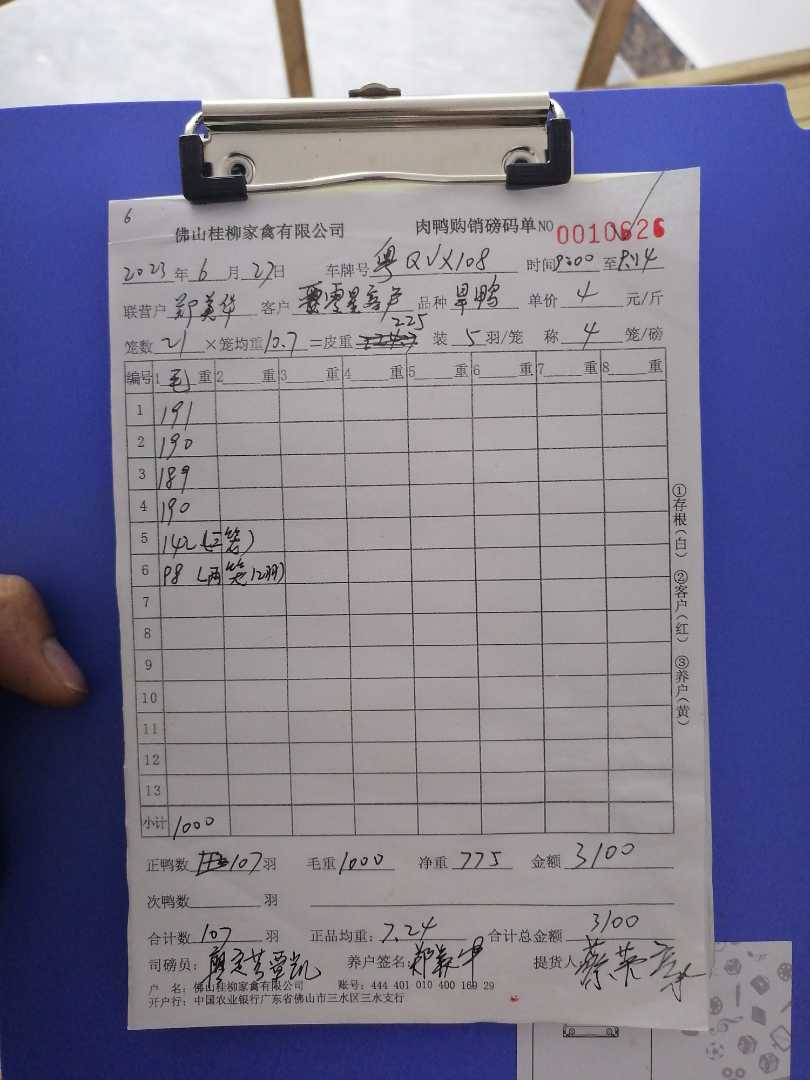 6
佛山桂柳家禽有限公司 肉鸭购销磅码单 NO 0010626
2023年6月27日 车牌号 粤QVX108 时间 9:00 至 9:14
联营户 郑美华 客户 零星客户 品种 旱鸭 单价 4 元/斤
225
笼数 21 ×笼均重 10.7 =皮重 装 5 羽/笼 称 4 笼/磅
编号 1 毛 重 2 重 3 重 4 重 5 重 6 重 7 重 8 重
1 191
2 190
3 189
4 190
5 142 (三笼)
6 98 (两笼12羽)
7
8
9
10
11
12
13
小计 1000
①存根(白) ②客户(红) ③养户(黄)
正鸭数 107 羽 毛重 1000 净重 775 金额 3100
次鸭数 羽
合计数 107 羽 正品均重: 7.24 合计总金额 3100
司磅员: 养户签名: 郑美华 提货人
户 名: 佛山桂柳家禽有限公司 账号: 444 401 010 400 169 29
开户行: 中国农业银行广东省佛山市三水区三水支行